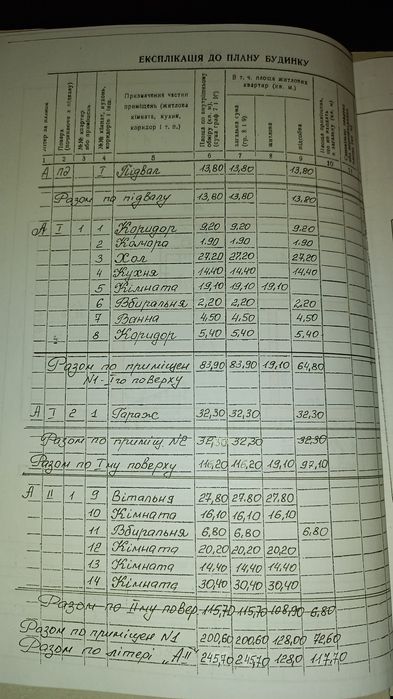 ЕКСПЛІКАЦІЯ ДО ПЛАНУ БУДИНКУ
Літер за планом
Поверх (починаючи з підвалу)
№№ квартир або приміщень
№№ кімнат, кухонь, коридорів і інш.
Призначення частин приміщень (житлова кімната, кухня, коридор і т. п.)
Площа по внутрішньому обміру (кв. м) (сума граф 7 і 10)
В т. ч. площа житлових квартир (кв. м.)
загальна сума (гр. 8 і 9)
житлова
підсобна
1 2 3 4 5 6 7 8 9 10 11
А пд I Підвал 13,80 13,80 13.80
Разом по підвалу 13,80 13,80 13.80
А I 1 1 Коридор 9.20 9.20 9.20
2 Комора 1.90 1.90 1.90
3 Хол 27,20 27,20 27,20
4 Кухня 14,40 14,40 14,40
5 Кімната 19,10 19,10 19,10
6 Вбиральня 2,20 2,20 2.20
7 Ванна 4,50 4,50 4,50
8 Коридор 5,40 5,40 5.40
Разом по приміщен 83,90 83,90 19,10 64,80
N1-Iго поверху
А I 2 1 Гараж 32,30 32,30 32,30
Разом по приміщ N2 32,30 32,30 32,30
Разом по Iму поверху 116,20 116,20 19,10 97,10
А II 1 9 Вітальня 27,80 27.80 27,80
10 Кімната 16,10 16,10 16,10
11 Вбиральня 6,80 6,80 6,80
12 Кімната 20,20 20,20 20,20
13 Кімната 14,40 14,40 14,40
14 Кімната 30,40 30,40 30,40
Разом по IIму повер 115,70 115,70 108,90 6,80
Разом по приміщен N1 200,60 200,60 128,00 72,60
Разом по літері „АII" 245,70 245,70 128,0 117,70